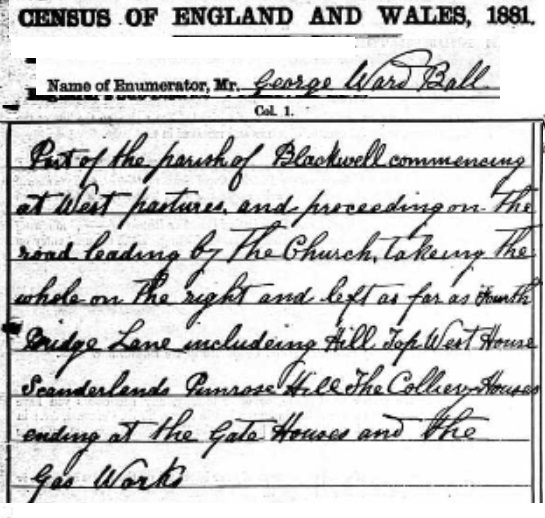 CENSUS OF ENGLAND AND WALES, 1881.
Name of Enumerator, Mr. George Ward Ball
Col. 1.
Part of the parish of Blackwell commencing
at West pastures, and proceeding on the
road leading by The Church, takeing the
whole on the right and left as far as Fourth
Bridge Lane includeing Hill Top West House
Scanderlands Primrose Hill The Colliery Houses
ending at the Gate Houses and the
Gas Works